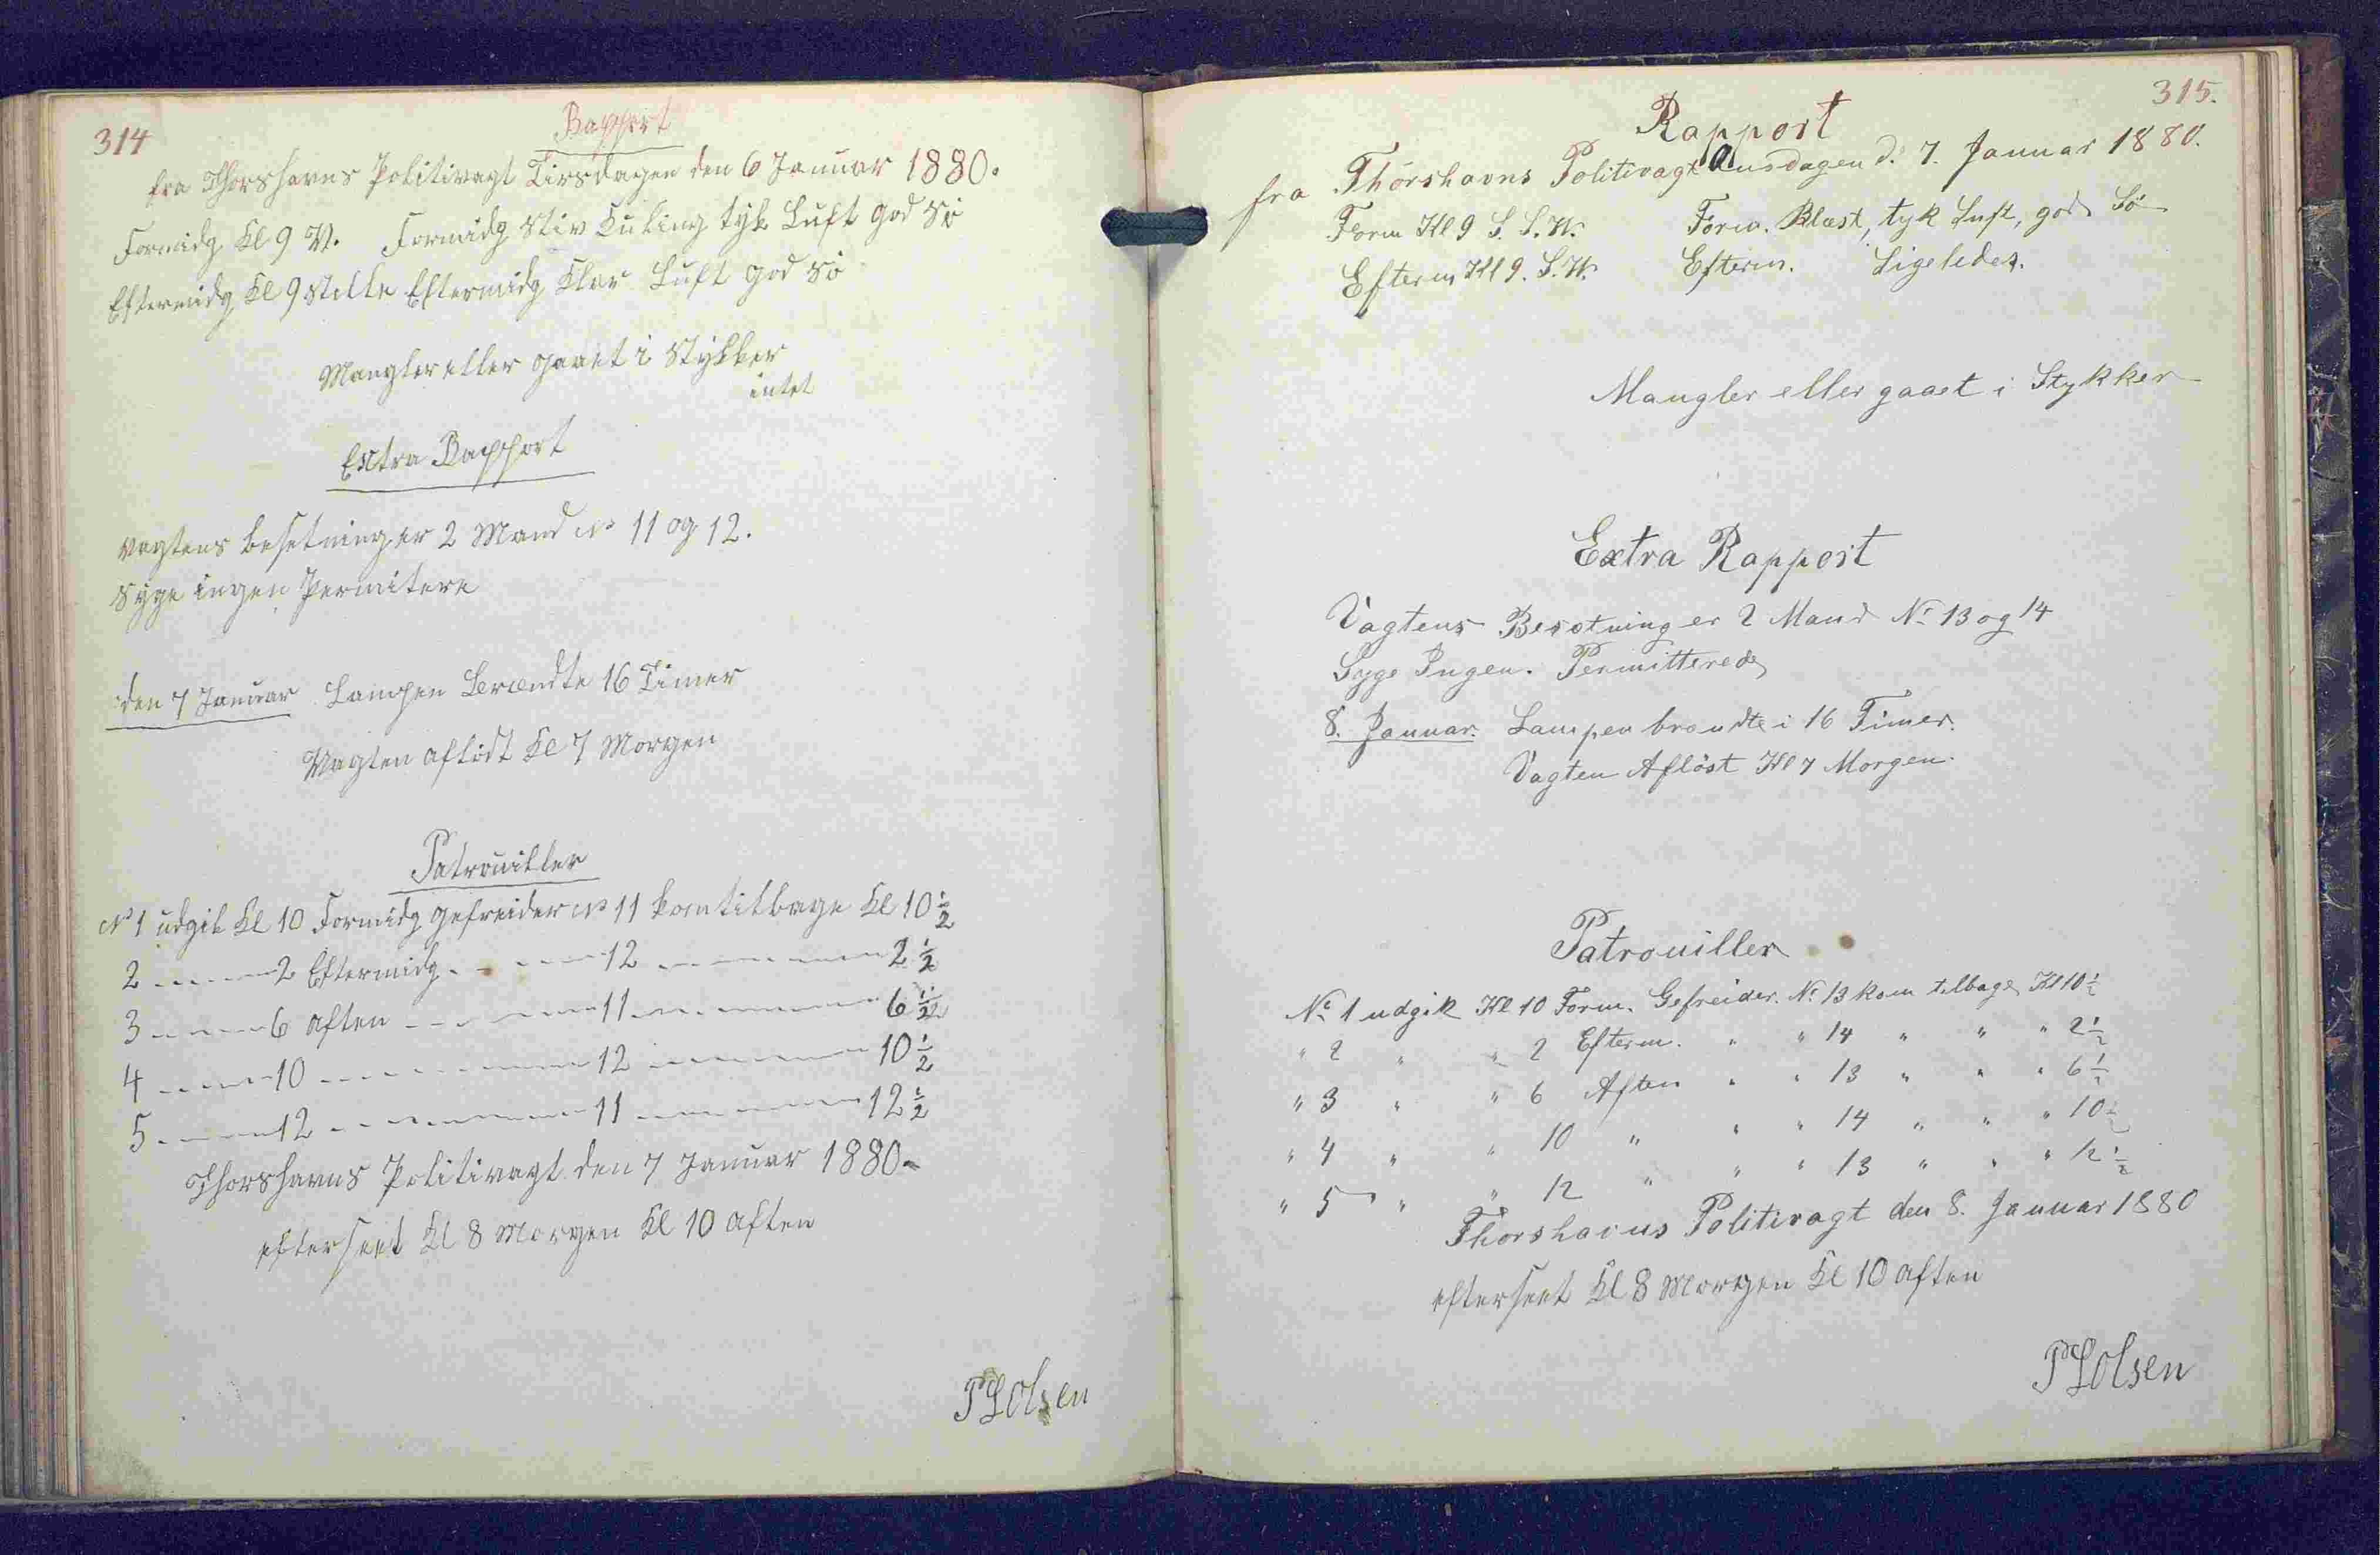 314
Rapport
fra Thorshavns Politivagt Tirsdagen den 6 Januar 1880.
Formidg Kl 9 V. Formidg Stiv Kuling tyk Luft god Sö
Eftermidg Kl 9 Stille Eftermidg Klar Luft god Sö
Mangler eller gaaet i Stykker
intet
Extra Rapport
Vagtens besetning er 2 Mand No 11 og 12.
Syge ingen Permitere
den 7 Januar Lampen Brændte 16 Timer
Vagten aflöst Kl 7 Morgen
Patrouiller
No 1 udgik Kl 10 Formidg gefreider No 11 kom tilbage Kl 10 1/2
2 - - - - 2 Eftermidg - - - - 12 - - - - 2 1/2
3 - - - - 6 aften - - - - 11 - - - - 6 1/2
4 - - - - 10 - - - - 12 - - - - 10 1/2
5 - - - - 12 - - - - 11 - - - - 12 1/2
Thorshavns Politivagt den 7 Januar 1880
efterseet Kl 8 Morgen Kl 10 aften
P L Olsen
315.
Rapport
fra Thorshavns Politivagt Onsdagen d. 7. Januar 1880.
Form Kl 9 S. S. W. Form. Blæst, tyk Luft, god Sö
Efterm Kl 9. S. W. Efterm. Ligeledes.
Mangler eller gaaet i Stykker
Extra Rapport
Vagtens Besætning er 2 Mand No 13 og 14
Syge Ingen. Permitterede
8. Januar. Lampen brændte i 16 Timer.
Vagten Aflöst Kl 7 Morgen.
Patrouiller
No 1 udgik Kl 10 Form. Gefreider. No 13 kom tilbage Kl 10 1/2
" 2 " " 2 Efterm. " " 14 " " " 2 1/2
" 3 " " 6 Aften " " 13 " " " 6 1/2
" 4 " " 10 " " " 14 " " " 10 1/2
" 5 " " 12 " " " 13 " " " 12 1/2
Thorshavns Politivagt den 8. Januar 1880
efterseet Kl 8 Morgen Kl 10 aften
P L Olsen